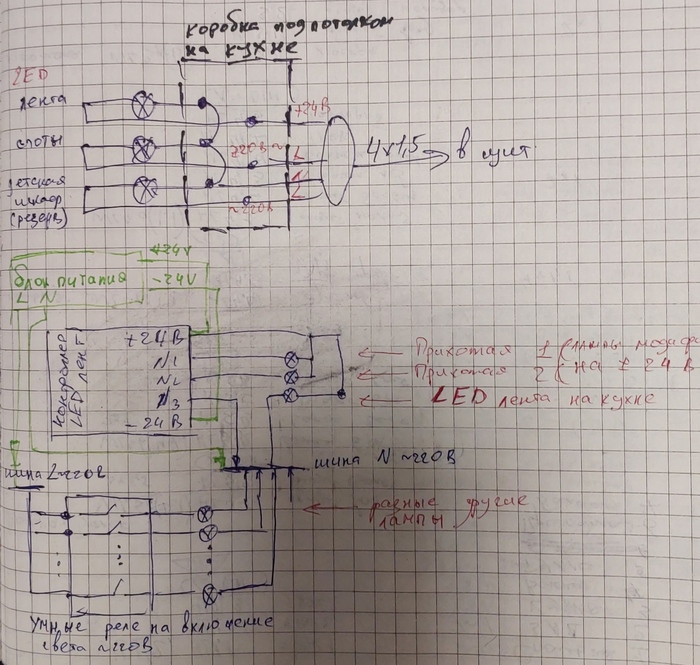 коробка под потолком
на кухне
LED
лента
+24В
споты
220В~
L
4х1,5
в щит
L
детская
шкаф
(резерв)
L
~220В
+24V
блок питания
-24V
L N
контроллер
LED лент
+24В
N1
N2
N3
-24В
Прихожая 1
Прихожая 2
на ± 24В
LED лента на кухне
шина L~220В
шина N ~220В
разные другие
лампы
Умные реле на включение
света ~220В